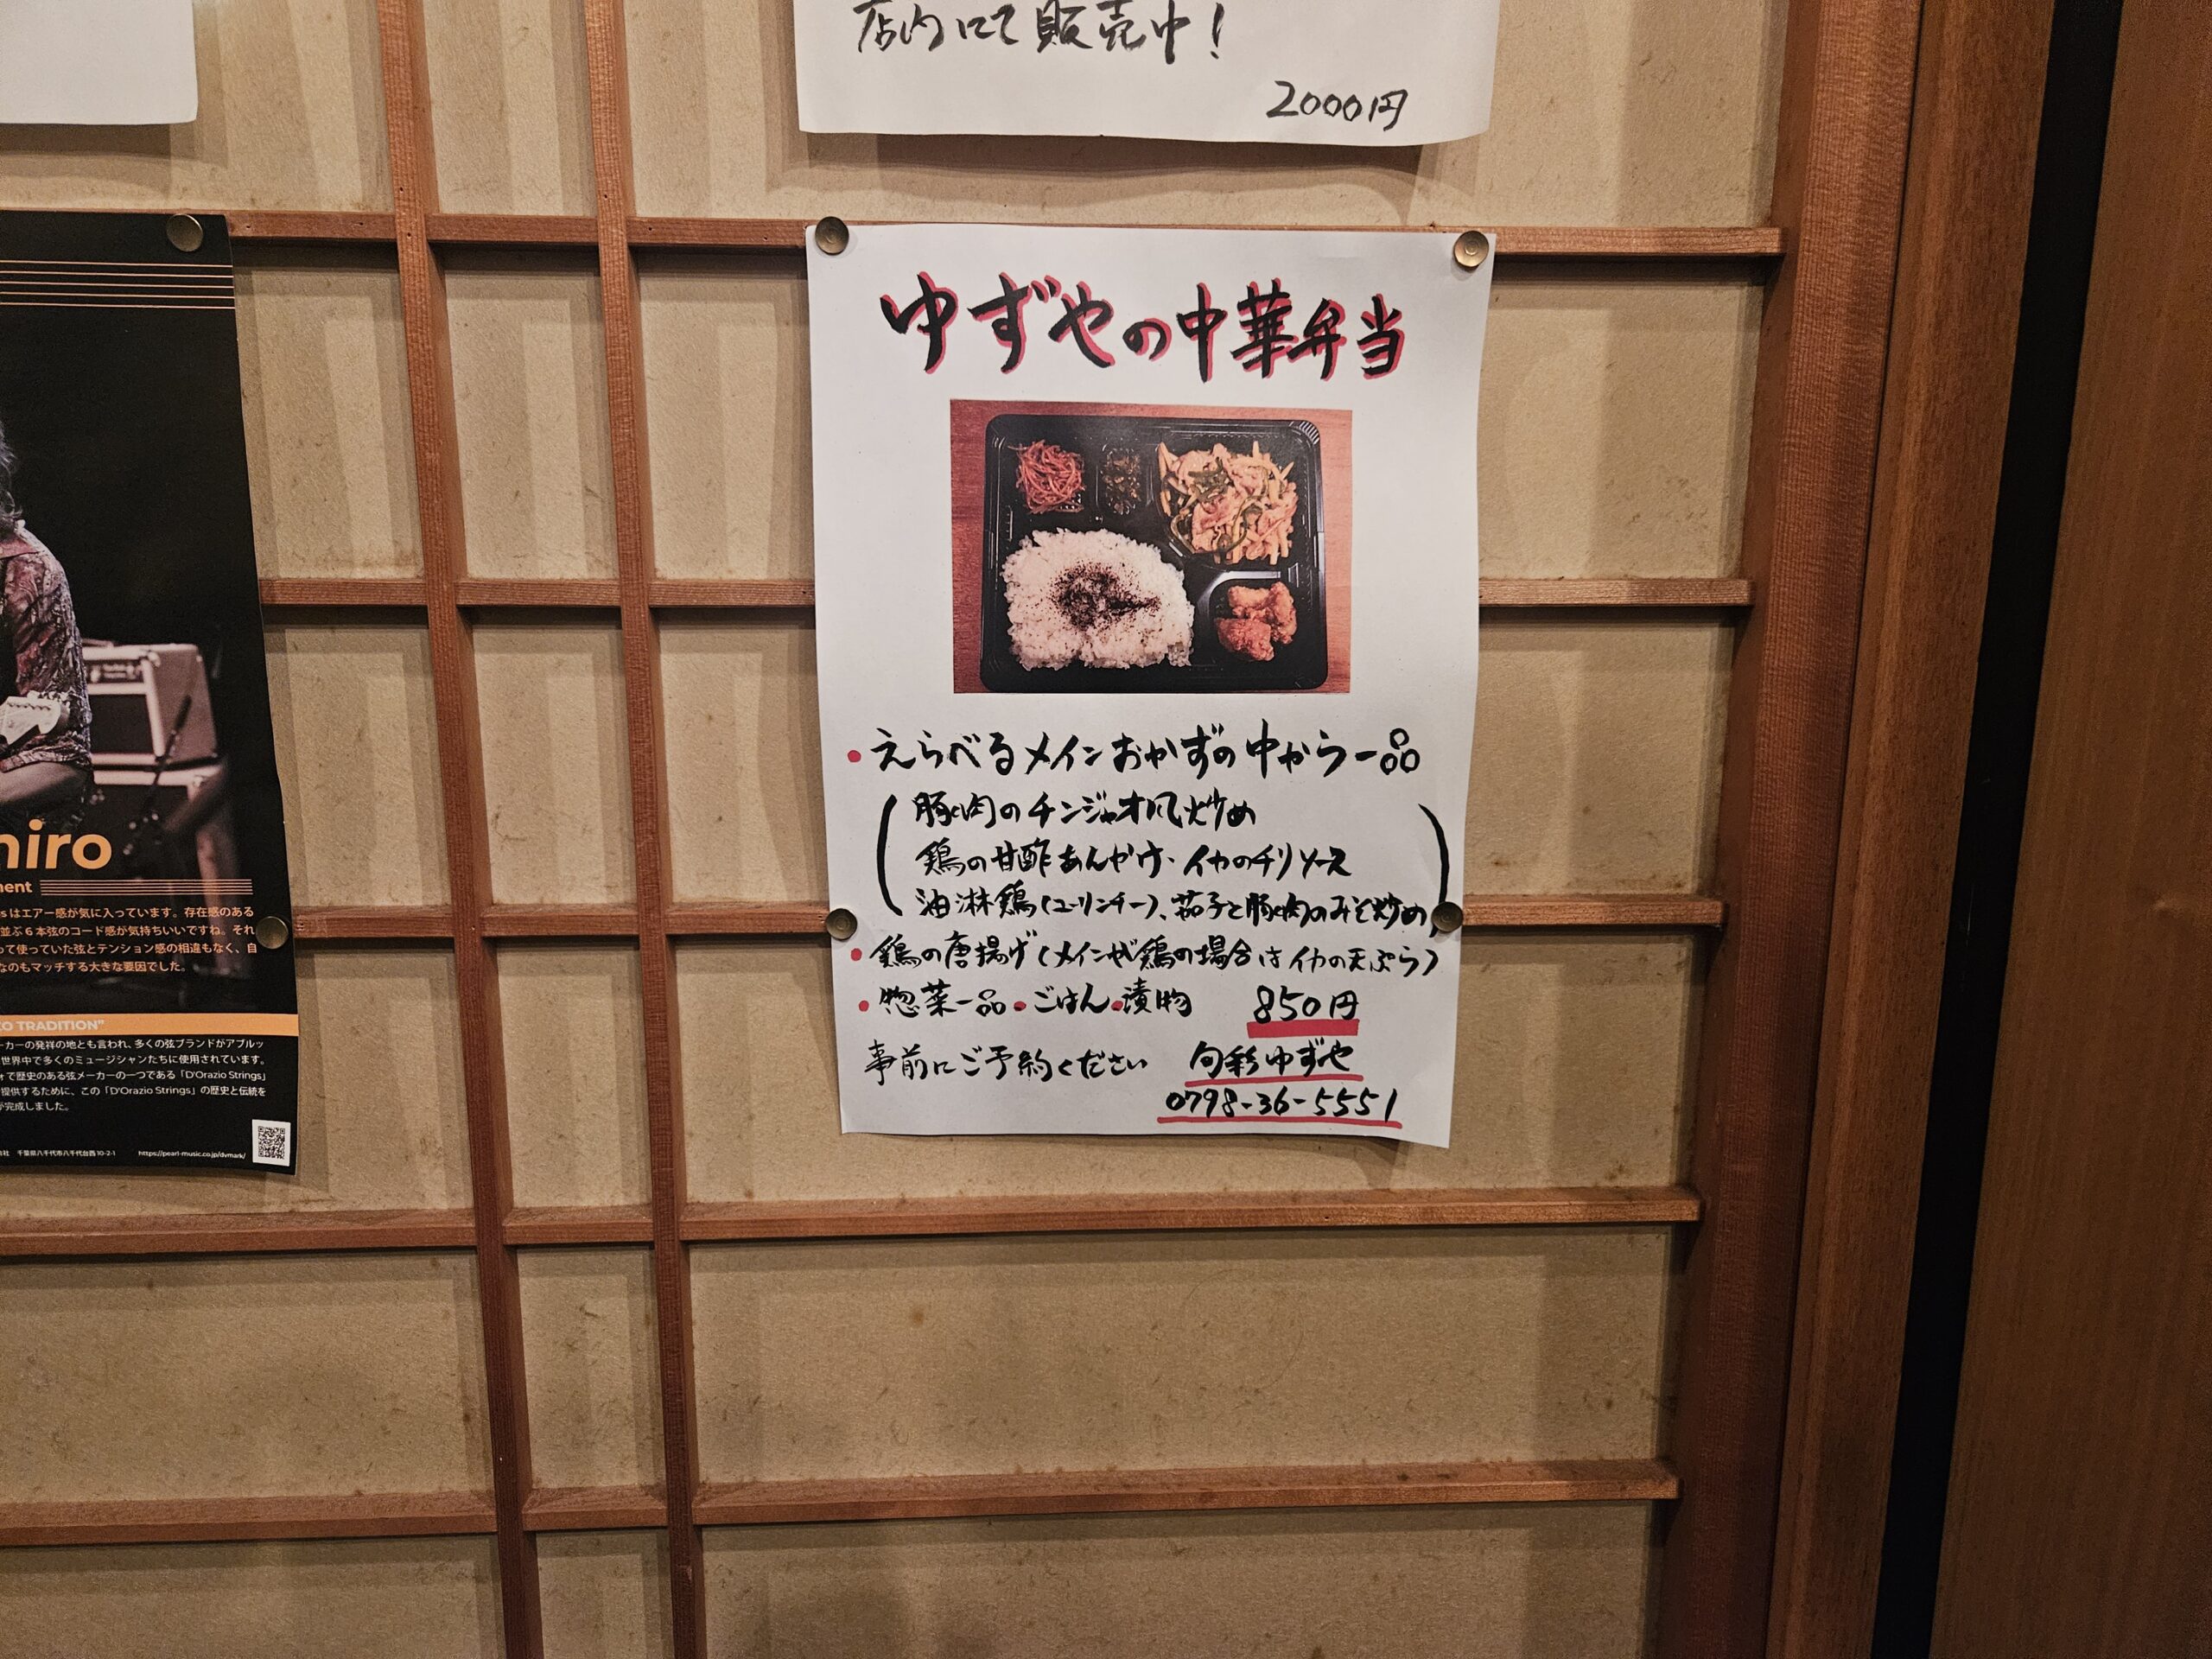 店内にて販売中!
2000円
ゆずやの中華弁当
・えらべるメインおかずの中から一品
(豚肉のチンジャオ風炒め
鶏の甘酢あんかけ・イカのチリソース
油淋鶏(ユーリンチー)、茄子と豚肉のみそ炒め)
・鶏の唐揚げ(メインが鶏の場合はイカの天ぷら)
・惣菜一品・ごはん・漬物 850円
事前にご予約ください 旬彩ゆずや
0798-36-5551
hiro
ment
sはエアー感が気に入っています。存在感のある
並ぶ6本弦のコード感が気持ちいいですね。それ
って使っていた弦とテンション感の相違もなく、自
なのもマッチする大きな要因でした。
O TRADITION"
ーカーの発祥の地とも言われ、多くの弦ブランドがアブルッ
世界中で多くのミュージシャンたちに使用されています。
で歴史のある弦メーカーの一つである「D'Orazio Strings」
提供するために、この「D'Orazio Strings」の歴史と伝統を
が完成しました。
社 千葉県八千代市八千代台西10-2-1 https://pearl-music.co.jp/dvmark/